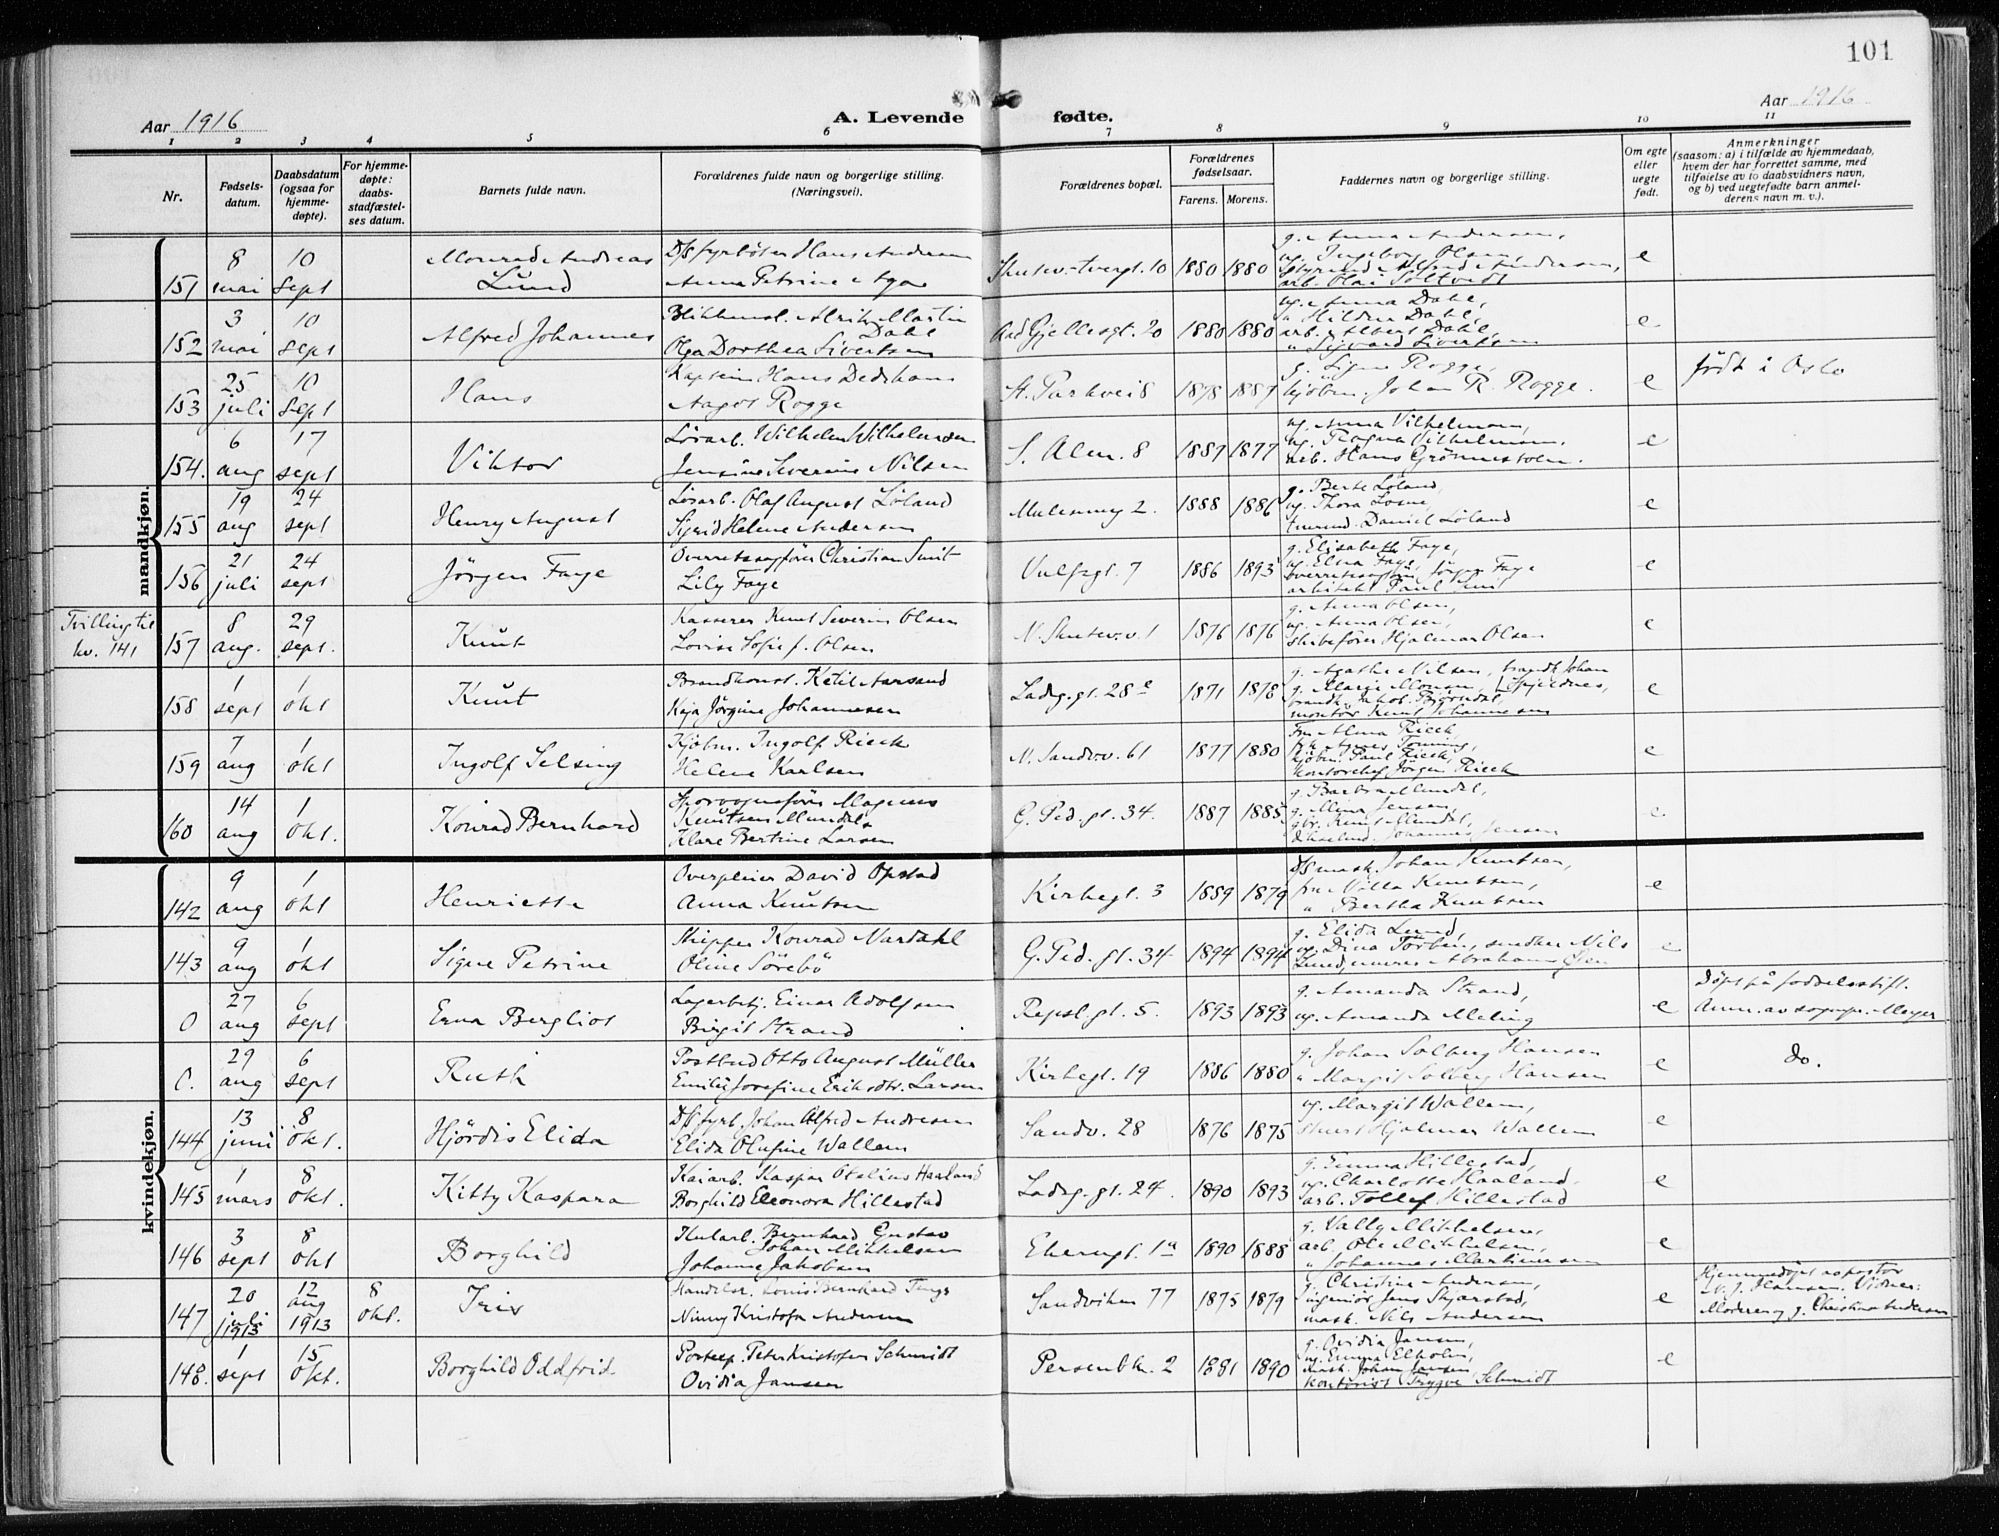 101
Aar 1916
A. Levende fødte.
Aar 1916
1 2 3 4 5 6 7 8 9 10 11
Nr.
Fødsels-
datum.
Daabsdatum
(ogsaa for
hjemme-
døpte).
For hjemme-
døpte:
daabs-
stadfæstel-
ses datum.
Barnets fulde navn.
Forældrenes fulde navn og borgerlige stilling.
(Næringsvei).
Forældrenes bopæl.
Forældrenes
fødselsaar.
Farens. Morens.
Faddernes navn og borgerlige stilling.
Om egte
eller
uegte
født.
Anmerkninger
(saasom: a) i tilfælde av hjemmedaab,
hvem der har forrettet samme, med
tilføielse av to daabsvidners navn,
og b) ved uegtefødte barn anmel-
derens navn m. v.).
mandkjøn.
151 8 mai 10 sept Monrad Andreas Lund
D/S fyrbøter Hans Andersen
Anna Petrine Aga
Skutev. tvergt. 10 1880 1880
g. Anna Andersen,
ug. Ingeborg Olsen,
Styrmd Alfred Andersen,
arb. Olai Soltvedt
e
152 3 mai 10 sept Alfred Johannes
Blikkensl. Alrik Martin Dahl
Olga Dorthea Sivertsen
Aad Gjellesgt. 20 1880 1880
ug. Anna Dahl,
" Hildra Dahl,
arb. Albert Dahl,
" Sigvard Sivertsen
e
153 25 juli 10 sept Hans
Kaptein Hans Dedekam
Aagot Rogge
St. Parkvei 8 1878 1887
g. Signe Rogge,
kjøbm. Johan R. Rogge.
e
født i Oslo
154. 6 aug 17 sept Viktor
Løsarb. Wilhelm Wilhelmsen
Jensine Severine Nilsen
S. Alm. 8 1887 1877
ug. Anna Vilhelmsen,
ug. Ragna Vilhelmsen.
arb. Hans Grønnestølen.
e
155 19 aug 24 sept Henry August
Løsarb. Olaf August Løland
Sigrid Helene Andersen
Mulesmug 2. 1888 1886
g. Berte Løland,
ug. Thora Losne
Daniel Løland
e
156 21 juli 24 sept Jörgen Faye
Overretssagfører Christian Smit
Lily Faye
Vulfsgt. 7 1886 1893
g. Elisabeth Faye,
ug. Elna Faye,
overretssagfører Jörgen Faye
arkitekt Paul Smit
e
Tvilling til
kv. 141
157 8 aug. 29 sept. Knut
Kasserer Knut Severin Olsen
Lovise Sofie f. Olsen
N. Skutev. v. 1 1876 1876
g. Anna Olsen,
ug. Anna Olsen,
skibsfører Hjalmar Olsen
e
158 1 sept 1 okt Knut
Brandkonst. Ketil Aarsand
Kaja Jörgine Johannesen
Ladeg.gt. 28 e 1871 1878
g. Agathe Nilsen, brandk. Johan
g. Marie Monsen, [Skjeldnes,
brandk. Jakob Bjørndal,
montör Knut Johannesen
e
159 7 aug 1 okt Ingolf Selsing
Kjöbm. Ingolf Rieck
Helene Karlsen
N. Sandv.v. 61 1877 1880
Fru Alma Rieck,
frk Agnes Tenning,
kjøbm. Paul Rieck,
kontorchef Jörgen Rieck
e
160 14 aug 1 okt. Konrad Bernhard
Sporvognsfører Magnus
Knutsen Mundal &
Klare Bertine Larsen
G. Ped.gt. 34. 1887 1885
g. Barbra Mundal,
g. Mina Jensen,
gbr. Knut Mundal,
Johannes Jensen
e
kvindekjøn.
142 9 aug 1 okt Henriette
Overpleier David Opstad
Anna Knutsen
Kirkegt. 3 1889 1879
D/S mask. Johan Knutsen,
fru Nilla Knutsen,
" Bertha Knutsen
e
143 9 aug 1 okt Signe Petrine
Skipper Konrad Nardahl
Oline Sörebö
G. Ped.gt. 34 1894 1894
g. Elida Lund,
ug. Dina Torben, snedker Nils
Lund, murer Abraham Olsen
e
0 27 aug 6 sept Erna Bergliot
Lagerbetj. Einar Adolfsen
Birgit Strand
Repsl.gt. 5. 1893 1893
g. Amanda Strand,
ug. Amanda Meling
e
Döpt på födselsstift.
Anm. av sogepr. Meyer
0. 29 aug 6 sept Ruth
Postbud Otto August Müller
Emilie Josefine Eriksdtr. Larsen
Kirkegt. 19 1886 1880
g. Johan Solberg Hansen
" Margit Solberg Hansen
e
do.
144 13 juni 8 okt. Hjördis Elida
D/S fyrb. Johan Alfred Andresen
Elida Olufine Wallem
Sandv. 28 1876 1875
ug. Margit Wallem,
stuert Hjalmar Wallem
e
145 1 mars 8 okt. Kitty Kaspara
Kaiarb. Kaspar Otelius Haaland
Borghild Eleonora Hillestad
Ladeg.gt. 24. 1890 1893
g. Emma Hillestad,
ug. Charlotte Haaland.
arb. Tollef Hillestad
e
146 3 sept 8 okt Borghild
Kularb. Bernhard Gustav
Johan Mikkelsen
Johanne Jakobsen
Ekerengt. 1a 1890 1888
g. Vally Mikkelsen,
arb. Ole Mikkelsen,
" Johannes Martinussen
e
147 20 juli 1913 12 aug 1913 8 okt. Iris
Handelsr. Louis Bernhard Tings
Ninny Kristofa Andersen
Sandviken 77 1875 1879
g. Christine Andersen,
ingeniör Jens Skjerstad,
mask. Nils Andersen
e
Hjemmedøpt av pastor
N. J. Hansen. Vidner:
Moderen og g. Christine Andersen
148. 1 sept 15 okt. Borghild Oddfrid
Postexp. Peter Kristofer Schmidt
Ovidia Jansen
Persenbk. 2 1881 1890
g. Ovidia Jansen,
ug. Emma Elholm,
mask. Johan Jansen
kontorist Trygve Schmidt
e